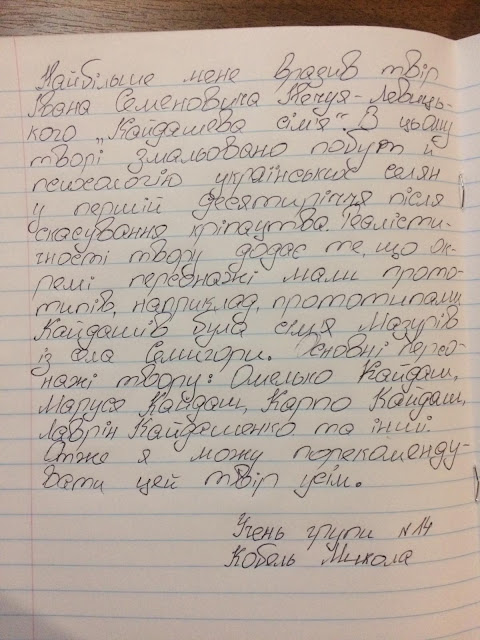 Найбільше мене вразив твір
Івана Семеновича Нечуя-Левиць-
кого „Кайдашева сім'я". В цьому
творі змальовано побут й
психологію українських селян
у перший десятиріччя після
скасування кріпацтва. Реалісти-
чності твору додає те, що ок-
ремі персонажі мали прото-
типів, наприклад, прототипами
Кайдашів була сім'я Мазурів
із села Семигори. Основні персо-
нажі твору: Омелько Кайдаш,
Маруся Кайдаш, Карпо Кайдаш,
Лаврін Кайдашенко та інші.
Отже я можу порекоменду-
вати цей твір усім.
Учень групи №14
Кобаль Микола